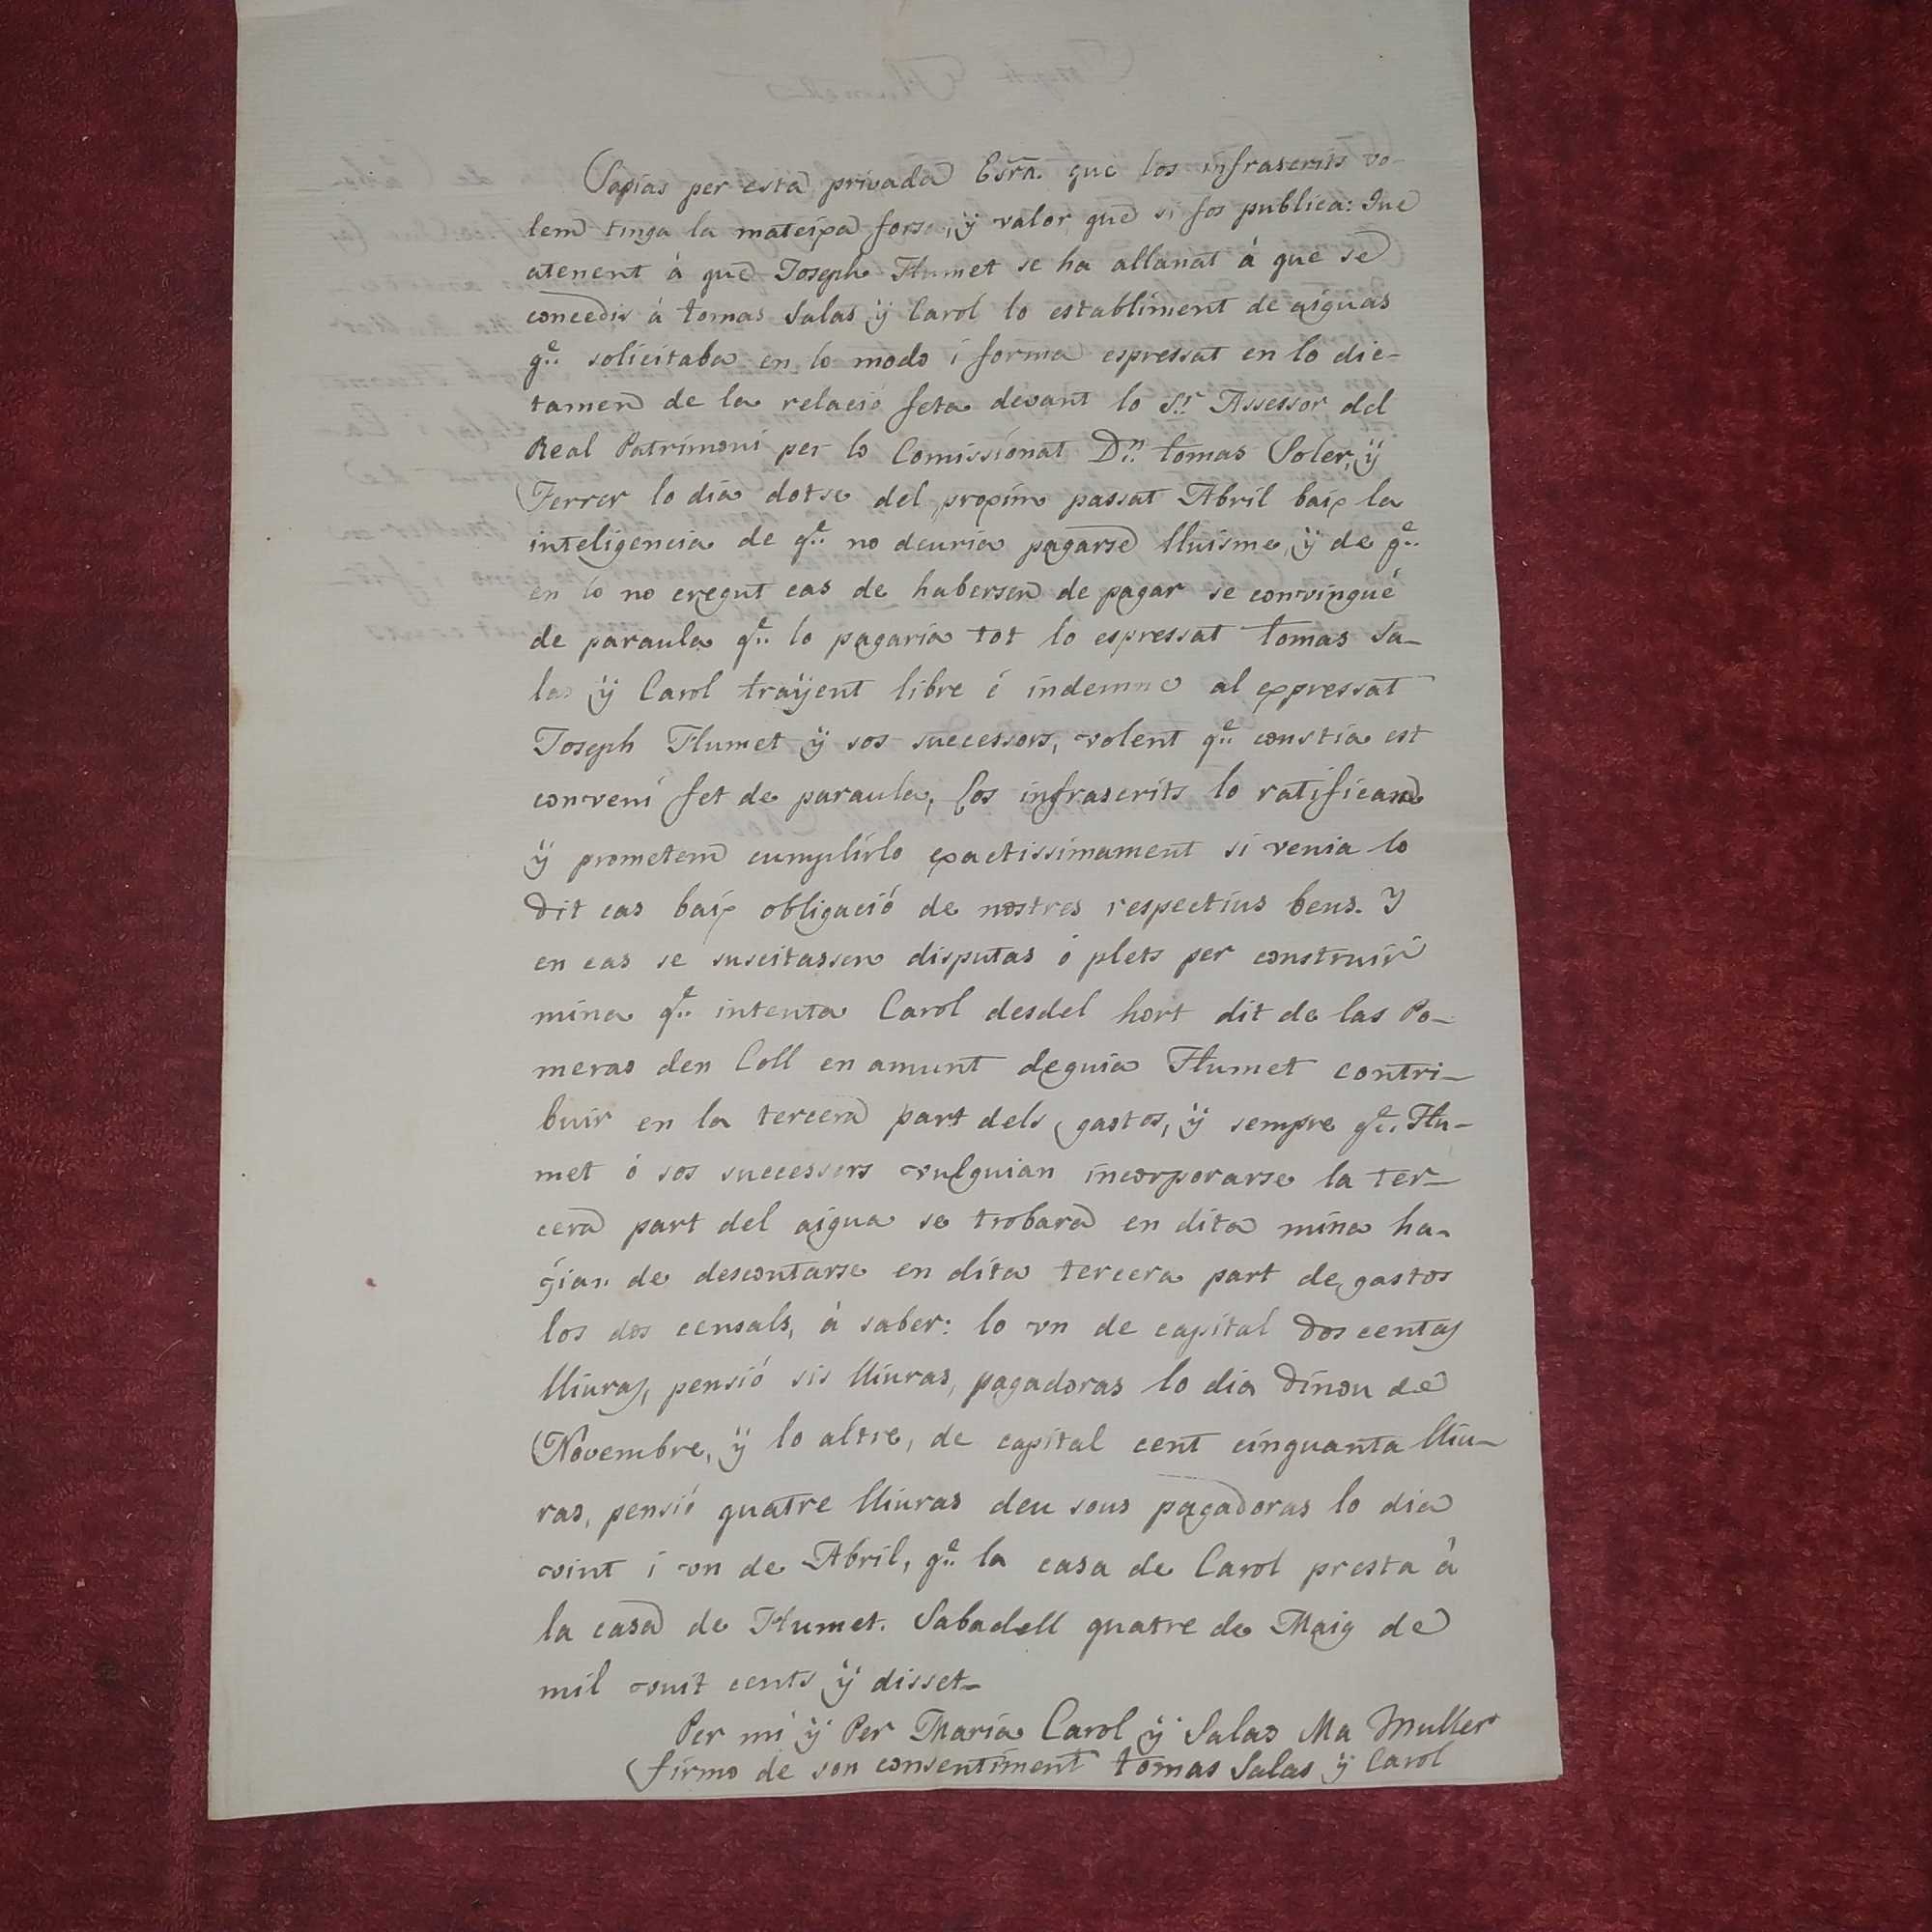 Sapias per esta privada Esra. que los infrascrits vo-
lem tinga la mateixa forsa, ÿ valor que si fos publica: Que
atenent á que Joseph Flumet se ha allanat á que se
concedis á tomas Salas ÿ Carol lo establiment de aiguas
qe. solicitaba en lo modo i forma espressat en lo dic-
tamen de la relació feta devant lo Sr. Assessor del
Real Patrimoni per lo Comissionat Dn. tomas Soler, ÿ
Ferrer lo dia dotse del proxim passat Abril baix la
inteligencia de qe. no deuria pagarse lluisme, ÿ de qe.
en lo no cregut cas de habersen de pagar se convingué
de paraula qe. lo pagaria tot lo espressat tomas Sa-
las ÿ Carol traÿent libre é indemne al expressat
Joseph Flumet ÿ sos successors, volent qe. constia est
conveni fet de paraula, los infrascrits lo ratifican
ÿ prometem cumplirlo exactissimament si venia lo
dit cas baix obligació de nostres respectius bens. Y
en cas se suscitassen disputas ó plets per construir
mina qe. intenta Carol desdel hort dit de las Po-
meras den Coll en amunt deguia Flumet contri-
buir en la tercera part dels gastos, ÿ sempre qe. Flu-
met ó sos successors vulguian incorporarse la ter-
cera part del aigua se trobara en dita mina ha-
gian de descontarse en dita tercera part de gastos
los dos censals, á saber: lo vn de capital dos centas
lliuras, pensió sis lliuras, pagadoras lo dia dinou de
Novembre, ÿ lo altre, de capital cent cinquanta lliu-
ras, pensió quatre lliuras deu sous pagadoras lo dia
vint i vn de Abril, qe. la casa de Carol presta á
la casa de Flumet. Sabadell quatre de Maig de
mil vuit cents ÿ disset-
Per mi ÿ Per Maria Carol ÿ Salas Ma Muller
firmo de son consentiment tomas Salas ÿ Carol